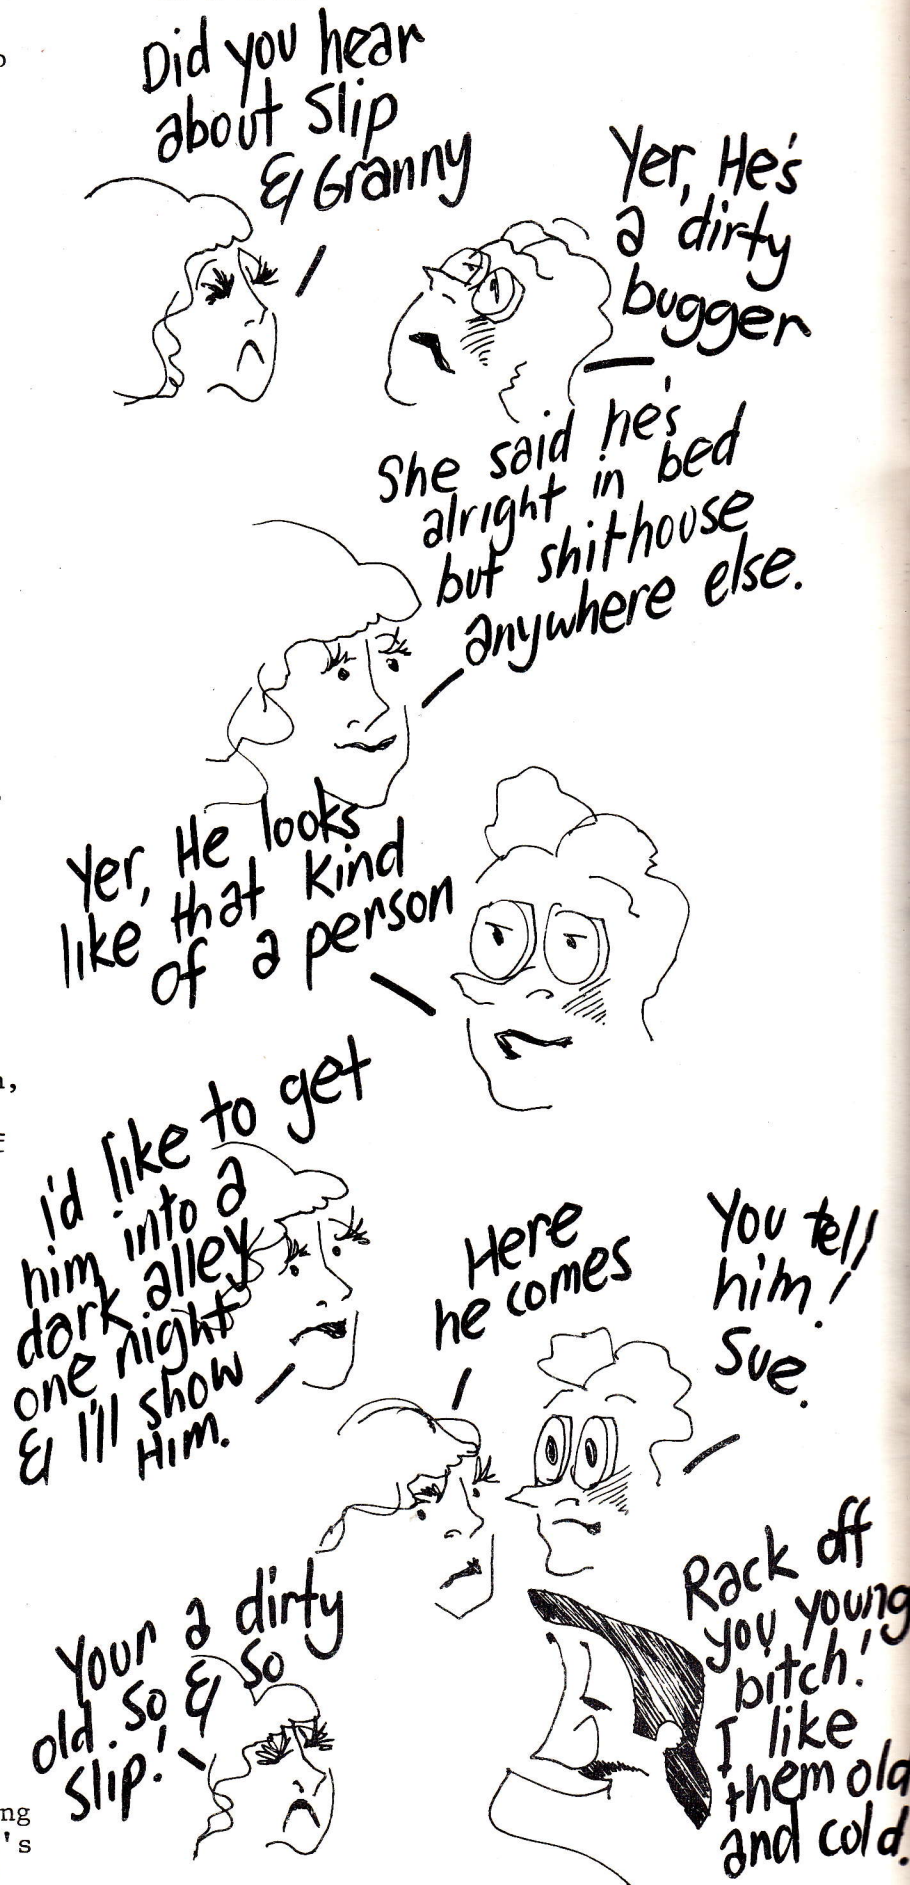 Did you hear
about Slip
& Granny
Yer, He's
a dirty
bugger
She said he's
alright in bed
but shithouse
anywhere else.
Yer, He looks
like that kind
of a person
i'd like to get
him into a
dark alley
one night
& I'll show
Him.
Here
he comes
You tell
him!
Sue.
Your a dirty
old so & so
Slip!
Rack off
you young
bitch!
I like
them old
and cold.
ng
's